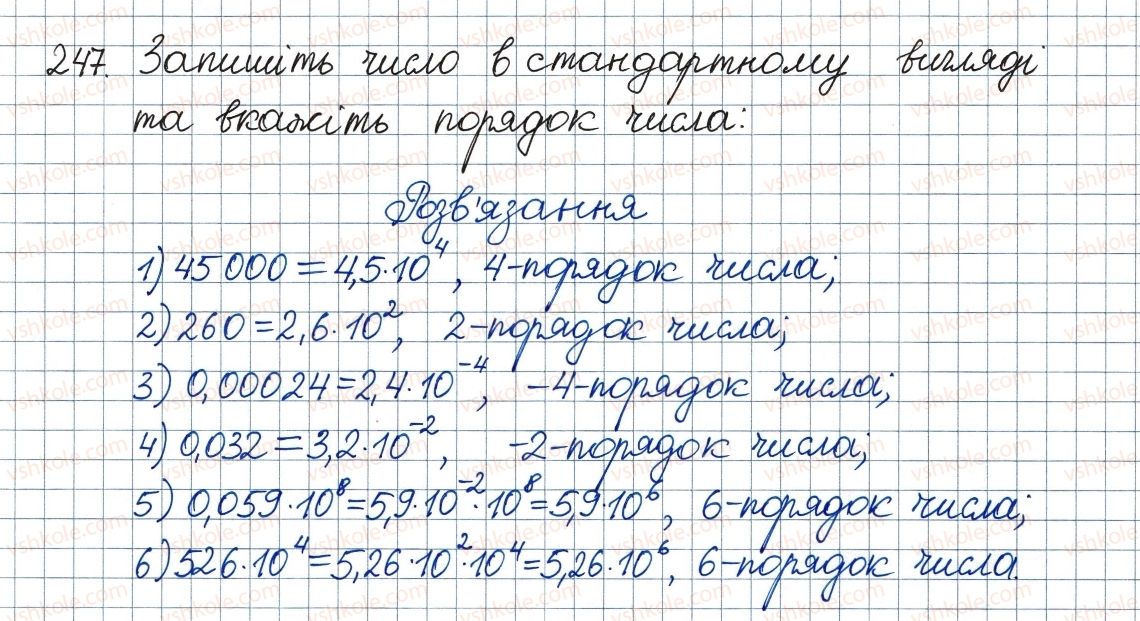 247. Запишіть число в стандартному вигляді
та вкажіть порядок числа:
Розв'язання
1) 45 000 = 4,5·10⁴, 4-порядок числа;
2) 260 = 2,6·10², 2-порядок числа;
3) 0,00024 = 2,4·10⁻⁴, -4-порядок числа;
4) 0,032 = 3,2·10⁻², -2-порядок числа;
5) 0,059·10⁸ = 5,9·10⁻²·10⁸ = 5,9·10⁶, 6-порядок числа;
6) 526·10⁴ = 5,26·10²·10⁴ = 5,26·10⁶, 6-порядок числа.